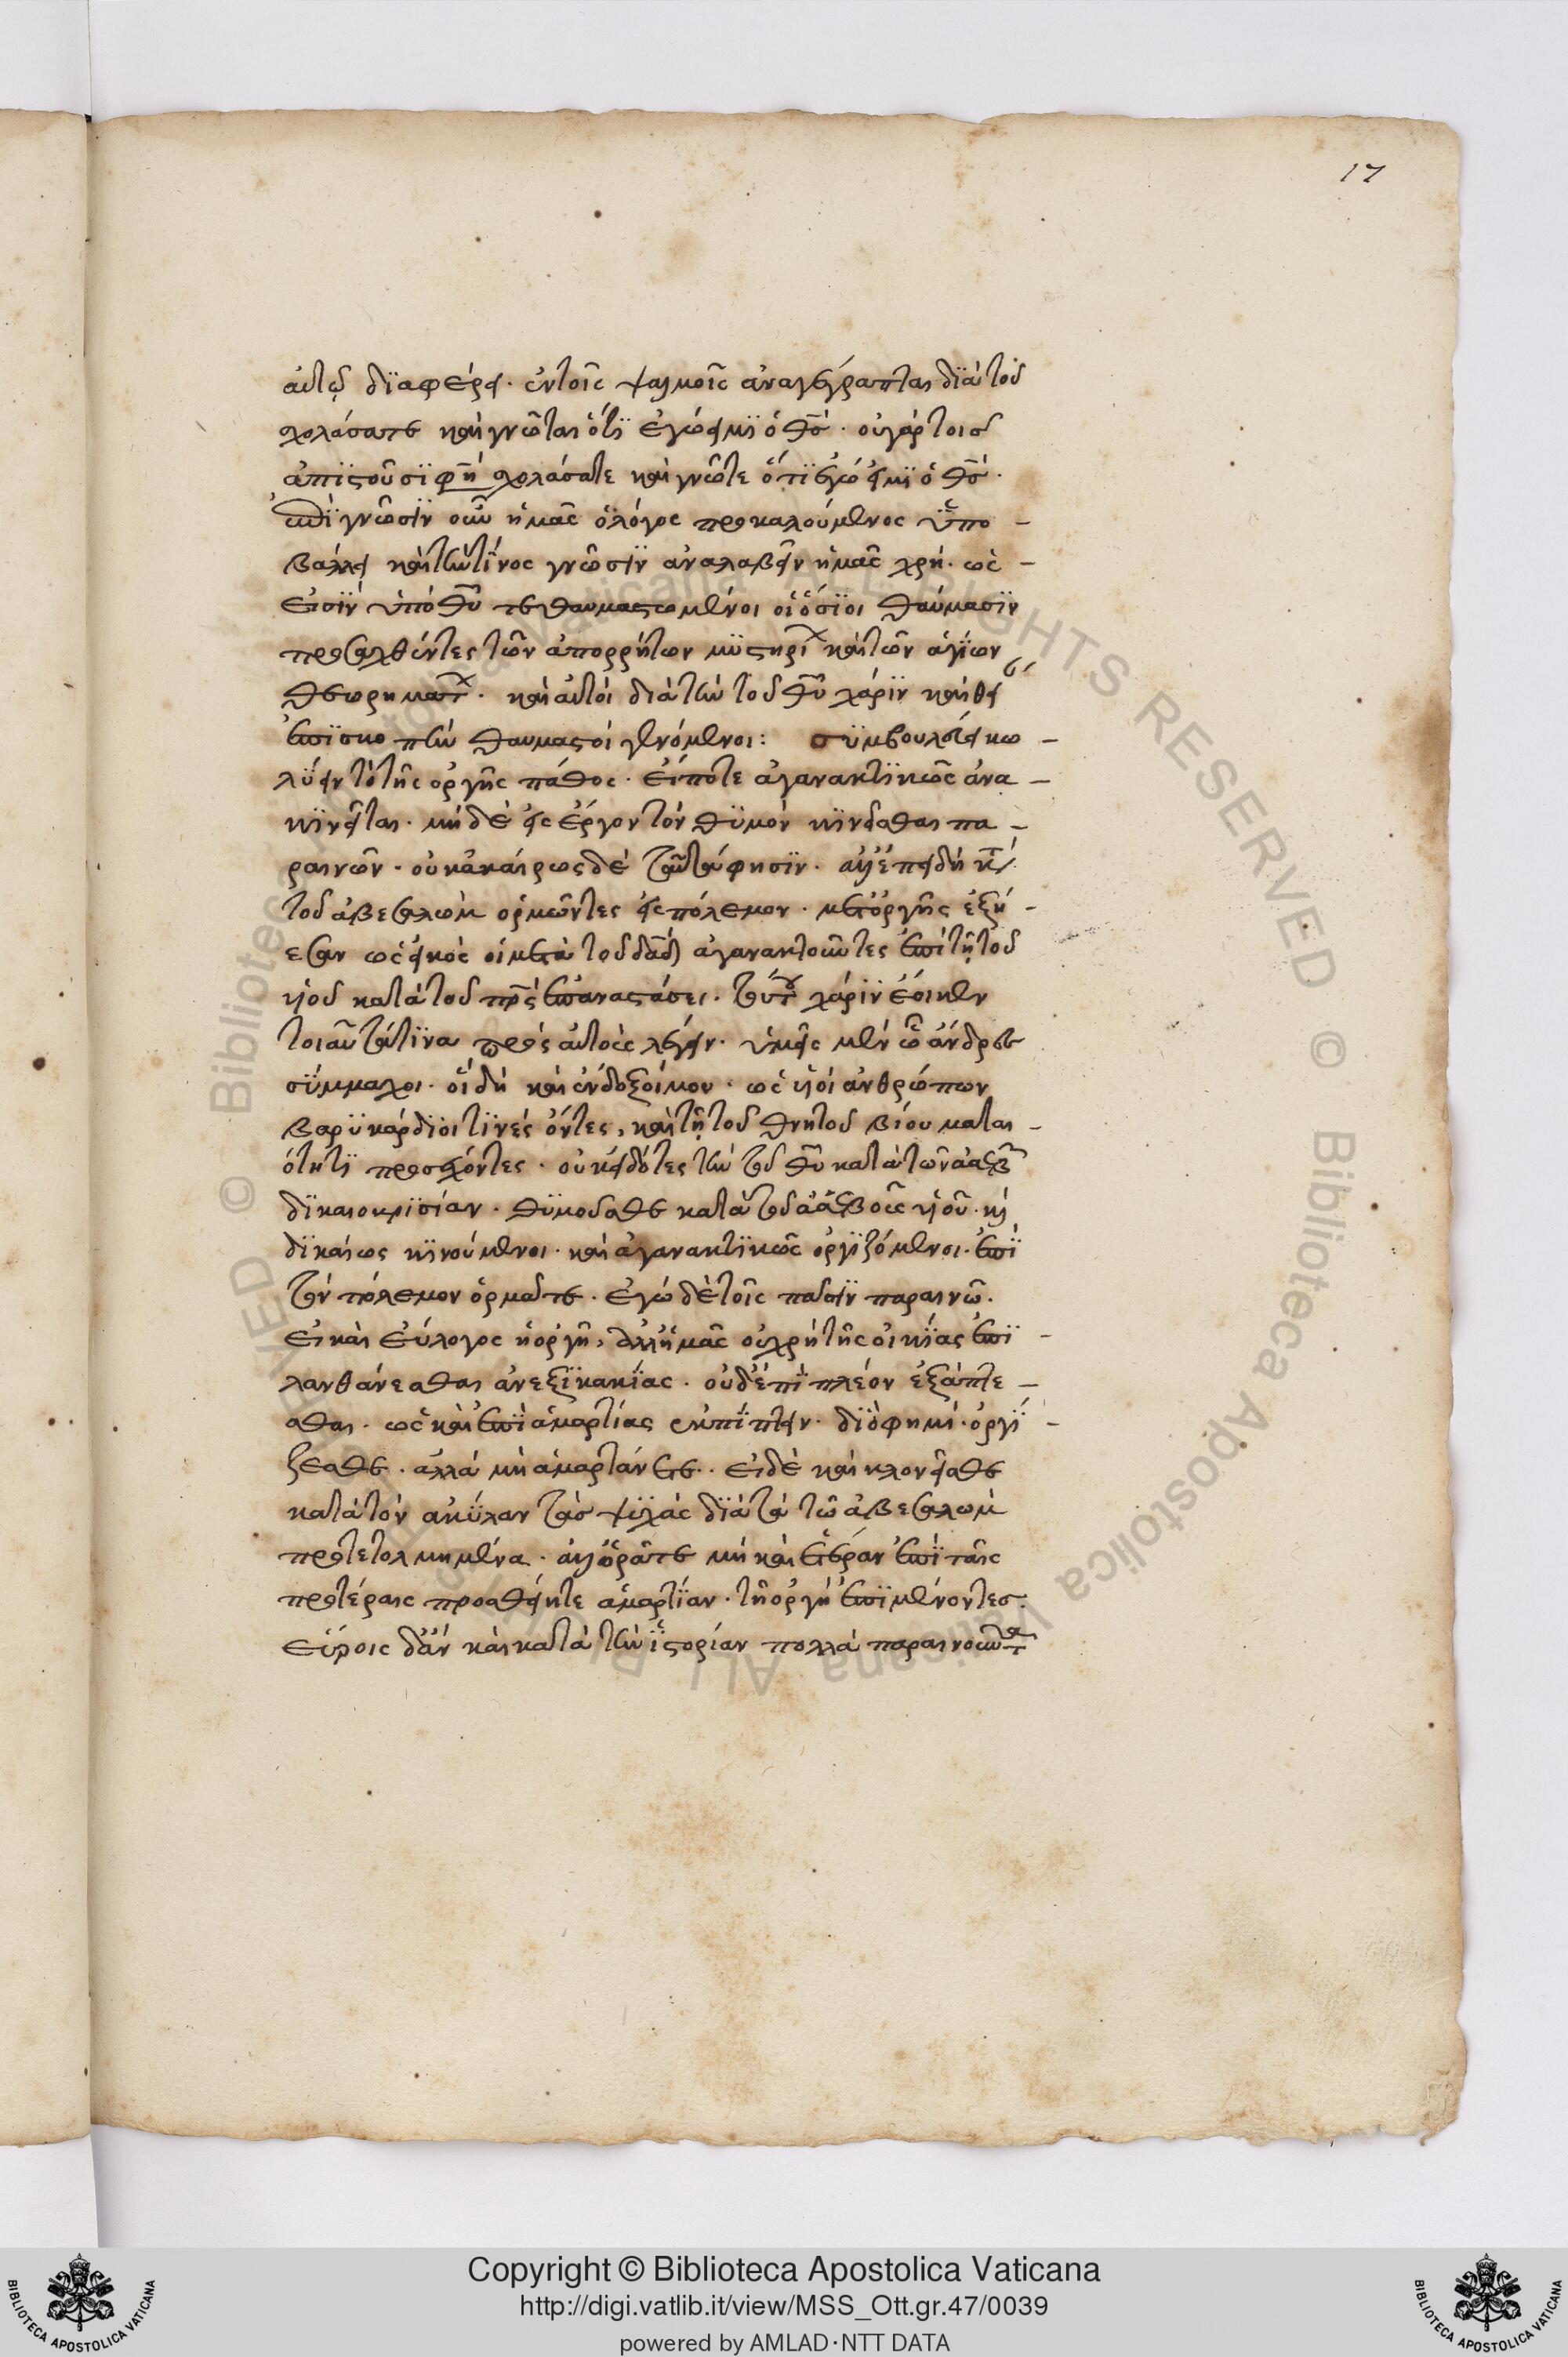 17
αὐτῷ διαφέρει. ἐν τοῖς ψαλμοῖς ἀναγέγραπται διὰ τοῦ
σχολάσατε καὶ γνῶται ὅτι ἐγώ εἰμι ὁ θς. οὐ γάρ τοις
ἀπιστοῦσι φησὶ σχολάσατε καὶ γνῶτε ὅτι ἐγώ εἰμι ὁ θς.
ἐπίγνωσιν οὖν ἡμᾶς ὁ λόγος προκαλούμενος ὑπο-
βάλλει καὶ τὴν τίνος γνῶσιν ἀναλαβεῖν ἡμᾶς χρή. ὡς-
εἰσὶν ὑπὸ θῦ τεθαυμαστωμένοι οἱ ὅσιοι θαύμασιν
προσαχθέντες τῶν ἀπορρήτων μυστηρίων καὶ τῶν ἁγίων
θεωρημάτων. καὶ αὐτοὶ διὰ τὴν τοῦ θῦ χάριν καὶ θεί
ἐπισκοπὴν θαυμαστοὶ γενόμενοι: συμβουλεύει κω-
λύειν τὸ τῆς ὀργῆς πάθος. εἴποτε ἀγανακτικῶς ἀνα-
κινεῖται. μὴ δὲ εἰς ἔργον τὸν θυμὸν κινεῖσθαι πα-
ραινῶν. οὐκ ἀκαίρως δὲ ταῦτα φησιν. ἀλλ' ἐπειδὴ κ
τοῦ ἀβεσαλὼμ ὁρμῶντες εἰς πόλεμον. μετ' ὀργῆς ἐξή-
εσαν ὡς εἰκὸς οἱ μετὰ τοῦ δαδ ἀγανακτοῦντες ἐπὶ τῇ τοῦ
υἱοῦ κατὰ τοῦ πρς ἐπαναστάσει. τούτου χάριν ἔοικεν
τοιαῦτά τινα πρὸς αὐτοὺς λέγειν. ὑμεῖς μὲν ὦ ἄνδρες
σύμμαχοι. οἱ δὴ καὶ ἔνδοξοί μου. ὡς υἱοὶ ἀνθρώπων
βαρυκάρδιοι τινὲς ὄντες, καὶ τῇ τοῦ θνητοῦ βίου μαται-
ότητι προσχόντες. οὐκ εἰδότες τὴν τοῦ θῦ κατὰ τῶν ἀσεβῶν
δικαιοκρισίαν. θυμοῦσθε κατὰ τοῦ ἀσεβοῦς υἱοῦ. κὶ
δικαίως κινούμενοι. καὶ ἀγανακτικῶς ὀργιζόμενοι. ἐπὶ
τὸν πόλεμον ὁρμᾶτε. ἐγὼ δὲ τοῖς πᾶσιν παραινῶ.
εἰ καὶ εὔλογος ἡ ὀργή, ἀλλ' ἡμᾶς οὐ χρὴ τῆς οἰκίας ἐπι-
λανθάνεσθαι ἀνεξικακίας. οὐδ' ἐπὶ πλέον ἐξάπτε-
σθαι. ὡς καὶ ἐπὶ ἁμαρτίας ἐκπίπτειν. διό φημι. ὀργί-
ζεσθε. ἀλλὰ μὴ ἁμαρτάνετε. εἰ δὲ καὶ κλονεῖσθε
κατὰ τὸν ἀκύλαν τὰς ψυχὰς διὰ τὰ τῶ ἀβεσαλὼμ
προτετολμημένα. ἀλλ' ὁρᾶτε μὴ καὶ ἑτέραν ἐπὶ ταῖς
προτέραις προσθείητε ἁμαρτίαν. τῇ ὀργῇ ἐπιμένοντες.
εὕροις δ' ἂν καὶ κατὰ τὴν ἱστορίαν πολλὰ παραινοῦντα
Copyright © Biblioteca Apostolica Vaticana
http://digi.vatlib.it/view/MSS_Ott.gr.47/0039
powered by AMLAD·NTT DATA